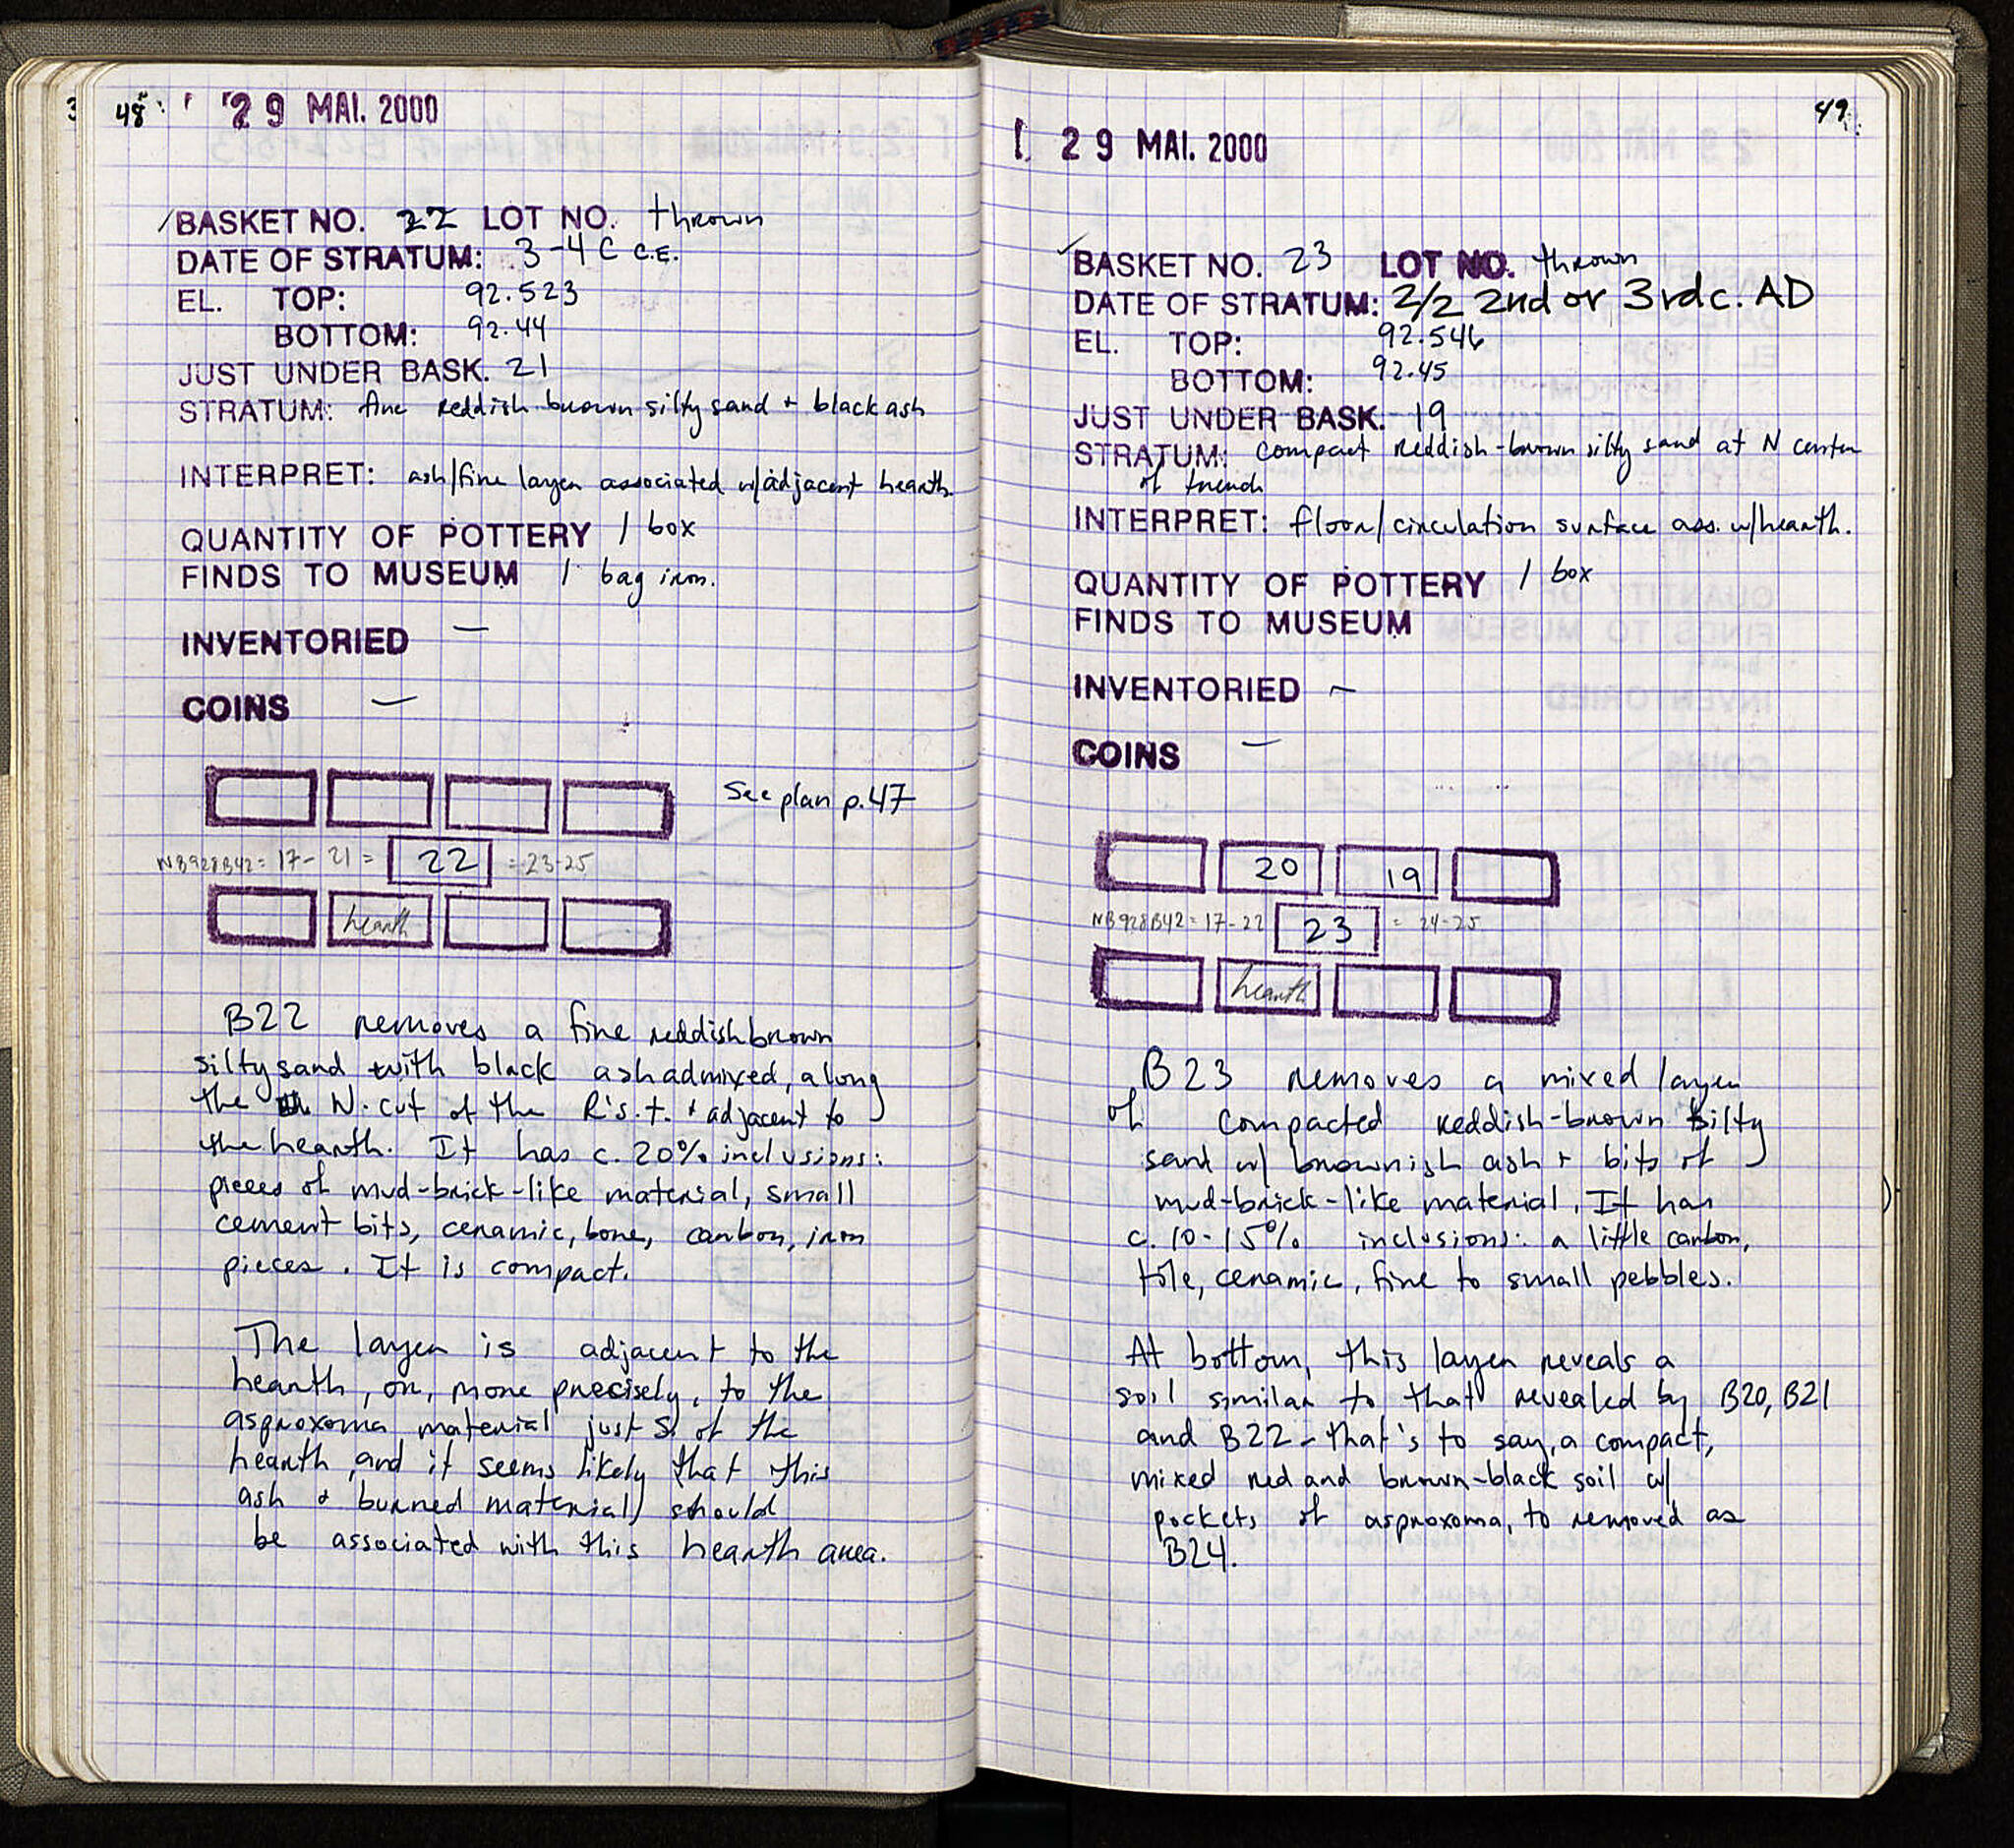 48
29 MAI. 2000
BASKET NO. 22 LOT NO. thrown
DATE OF STRATUM: 3-4 C C.E.
EL. TOP: 92.523
BOTTOM: 92.44
JUST UNDER BASK. 21
STRATUM: fine reddish brown silty sand + black ash
INTERPRET: ash/fine layer associated w/adjacent hearth.
QUANTITY OF POTTERY 1 box
FINDS TO MUSEUM 1 bag iron.
INVENTORIED —
COINS —
See plan p.47
NB928B42 = 17- 21 = 22 = 23-25
hearth
B22 removes a fine reddish brown
silty sand with black ash admixed, along
the N. cut of the R.s.t. + adjacent to
the hearth. It has c. 20% inclusions:
pieces of mud-brick-like material, small
cement bits, ceramic, bone, carbon, iron
pieces. It is compact.
The layer is adjacent to the
hearth, or, more precisely, to the
asproxoma material just S. of the
hearth, and it seems likely that this
ash + burned material should
be associated with this hearth area.
49
29 MAI. 2000
BASKET NO. 23 LOT NO. thrown
DATE OF STRATUM: 2/2 2nd or 3rd c. AD
EL. TOP: 92.546
BOTTOM: 92.45
JUST UNDER BASK. 19
STRATUM: compact reddish-brown silty sand at N center
of trench
INTERPRET: floor/circulation surface ass. w/hearth.
QUANTITY OF POTTERY 1 box
FINDS TO MUSEUM
INVENTORIED —
COINS —
20 19
NB928B42 = 17-22 23 = 24-25
hearth
B23 removes a mixed layer
of compacted reddish-brown silty
sand w/ brownish ash + bits of
mud-brick-like material. It has
c. 10-15% inclusions: a little carbon,
tile, ceramic, fine to small pebbles.
At bottom, this layer reveals a
soil similar to that revealed by B20, B21
and B22 - that's to say, a compact,
mixed red and brown-black soil w/
pockets of asproxoma, to removed as
B24.